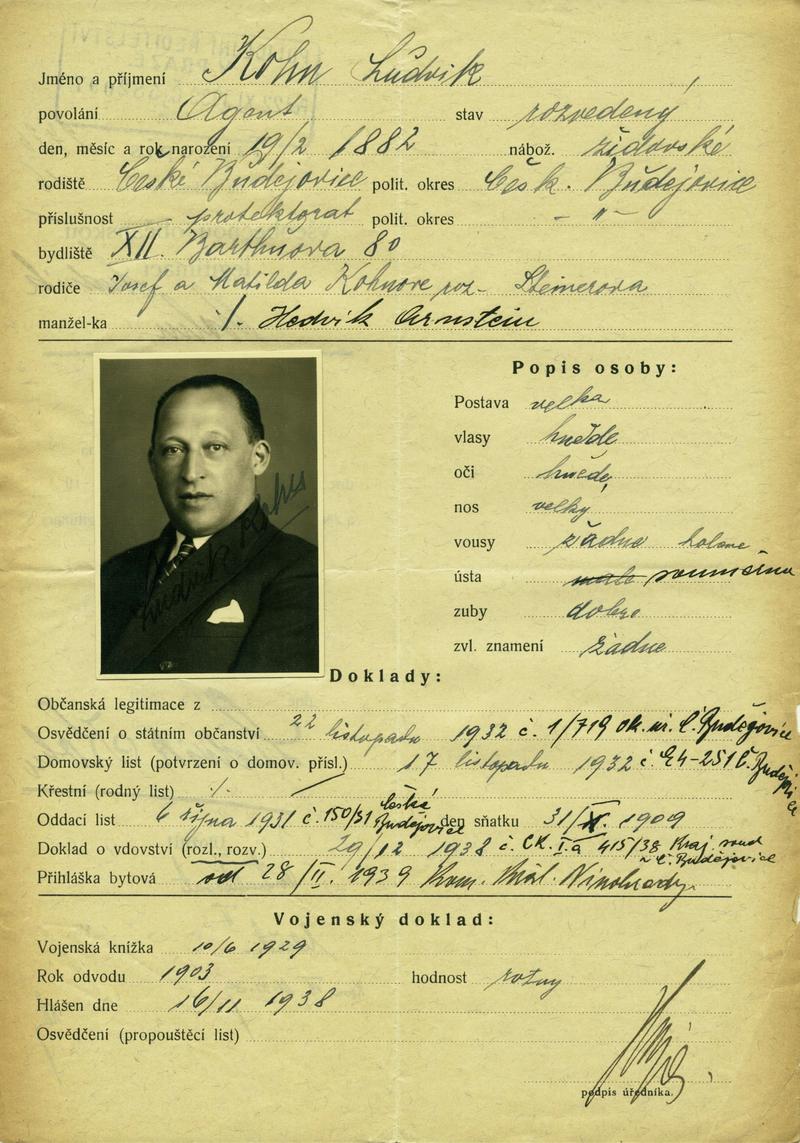 Jméno a příjmení Kohn Ludvik
povolání Agent stav rozvedený
den, měsíc a rok narození 19/2 1882 nábož. židovské
rodiště České Budějovice polit. okres Česk. Budějovice
příslušnost protektorat polit. okres – " –
bydliště XII. Barthňova 80
rodiče Josef a Matilda Kohnove roz- Steinerova
manžel-ka ./. Hedvik Arnstein
Popis osoby:
Postava velka
vlasy hnědé
oči hnědé
nos velky
vousy žádne holene
ústa male souměrna
zuby dobre
zvl. znamení žadne
Ludvik Kohn
Doklady:
Občanská legitimace z
Osvědčení o státním občanství 22 listopadu 1932 č. 1/719 ok. úř. Č. Budějovice
Domovský list (potvrzení o domov. přísl.) 17 listopadu 1932 č. 24-251 Č. Budějovice
Křestní (rodný list) ./.
Oddací list 6 října 1931 č. 150/31 České Budějovice den sňatku 31/X. 1909
Doklad o vdovství (rozl., rozv.) 29/12 1938 č. CK. Ia 415/38 Kraj. soud v Č. Budějovice
Přihláška bytová od 28/II. 1939 Kom. Král. Vinohrady.
Vojenský doklad:
Vojenská knížka 10/6 1929
Rok odvodu 1903 hodnost rotny
Hlášen dne 16/11 1938
Osvědčení (propouštěcí list)
podpis úředníka.